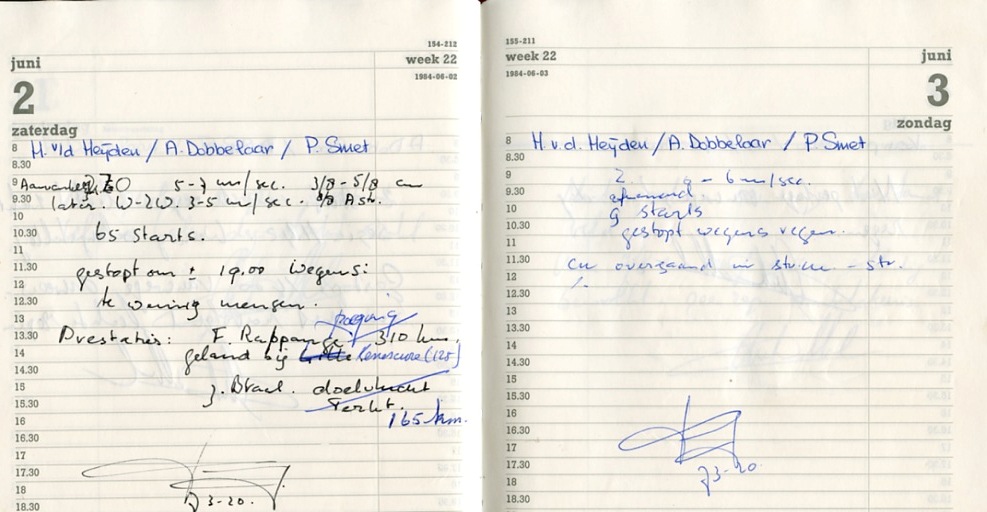 154-212
juni
week 22
1984-06-02
2
zaterdag
8 H. v/d Heyden / A. Dobbelaar / P. Smet
8.30
9 Aanvankelijk ZO 5-7 m/sec. 3/8 - 5/8 cu
9.30 later. W-ZW. 3-5 m/sec. 3/8 Astr.
10
10.30 65 starts.
11
11.30 gestopt om ± 19.00 wegens:
12
12.30 te weinig mensen.
13 poging
13.30 Prestaties: F. Rappange 310 km.
14 geland bij Lille Renescure (125)
14.30
15 J. Braal. doelvlucht
15.30 Terlet.
16 165 km.
16.30
17
17.30
18 J3-20.
18.30
155-211
week 22
juni
1984-06-03
3
zondag
8 H. v. d. Heyden / A. Dobbelaar / P. Smet
8.30
9 Z - 6 m/sec.
9.30 afnemend
10 9 starts
10.30 gestopt wegens regen.
11
11.30 cu overgaand in - str.
12
12.30
13
13.30
14
14.30
15
15.30
16
16.30
17
17.30 J3-20.
18
18.30